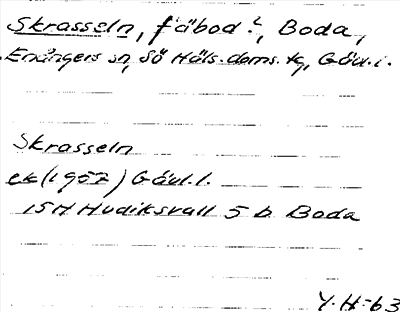 Skrasseln, fäbod?, Boda,
Enångers sn, Sö Häls. doms. tg, Gävl. l.
Skrasseln
ek (1957) Gävl. l.
15H Hudiksvall 5 b Boda
Y.H-63